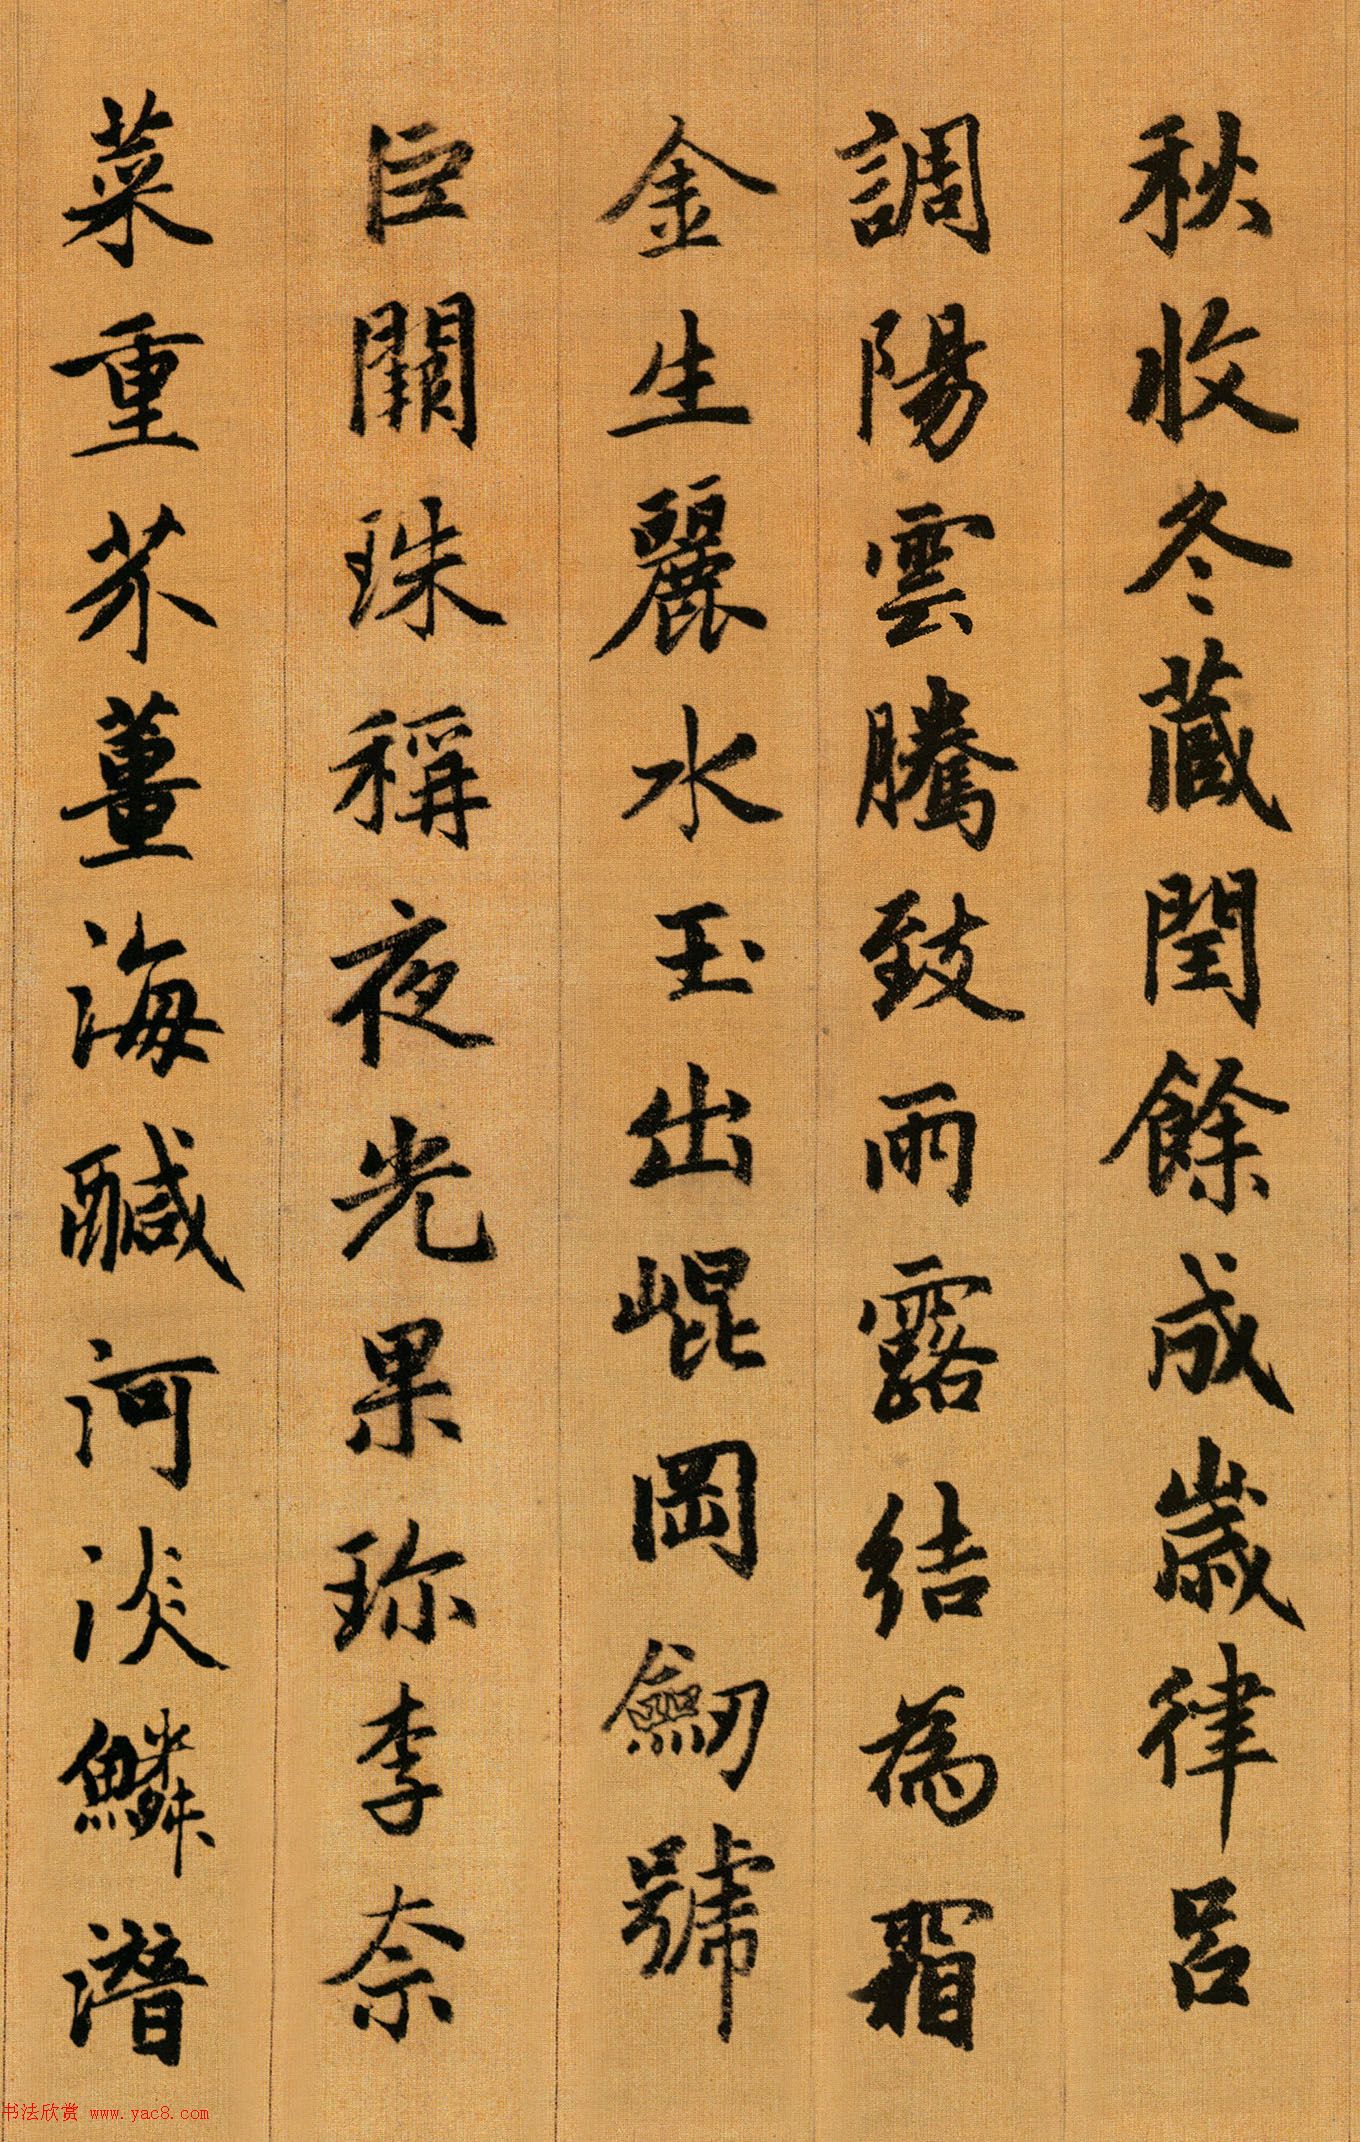 秋收冬藏閏餘成歲律呂
調陽雲騰致雨露結為霜
金生麗水玉出崐岡劒號
巨闕珠稱夜光果珎李柰
菜重芥薑海鹹河淡鱗潛
书法欣赏 www.yac8.com